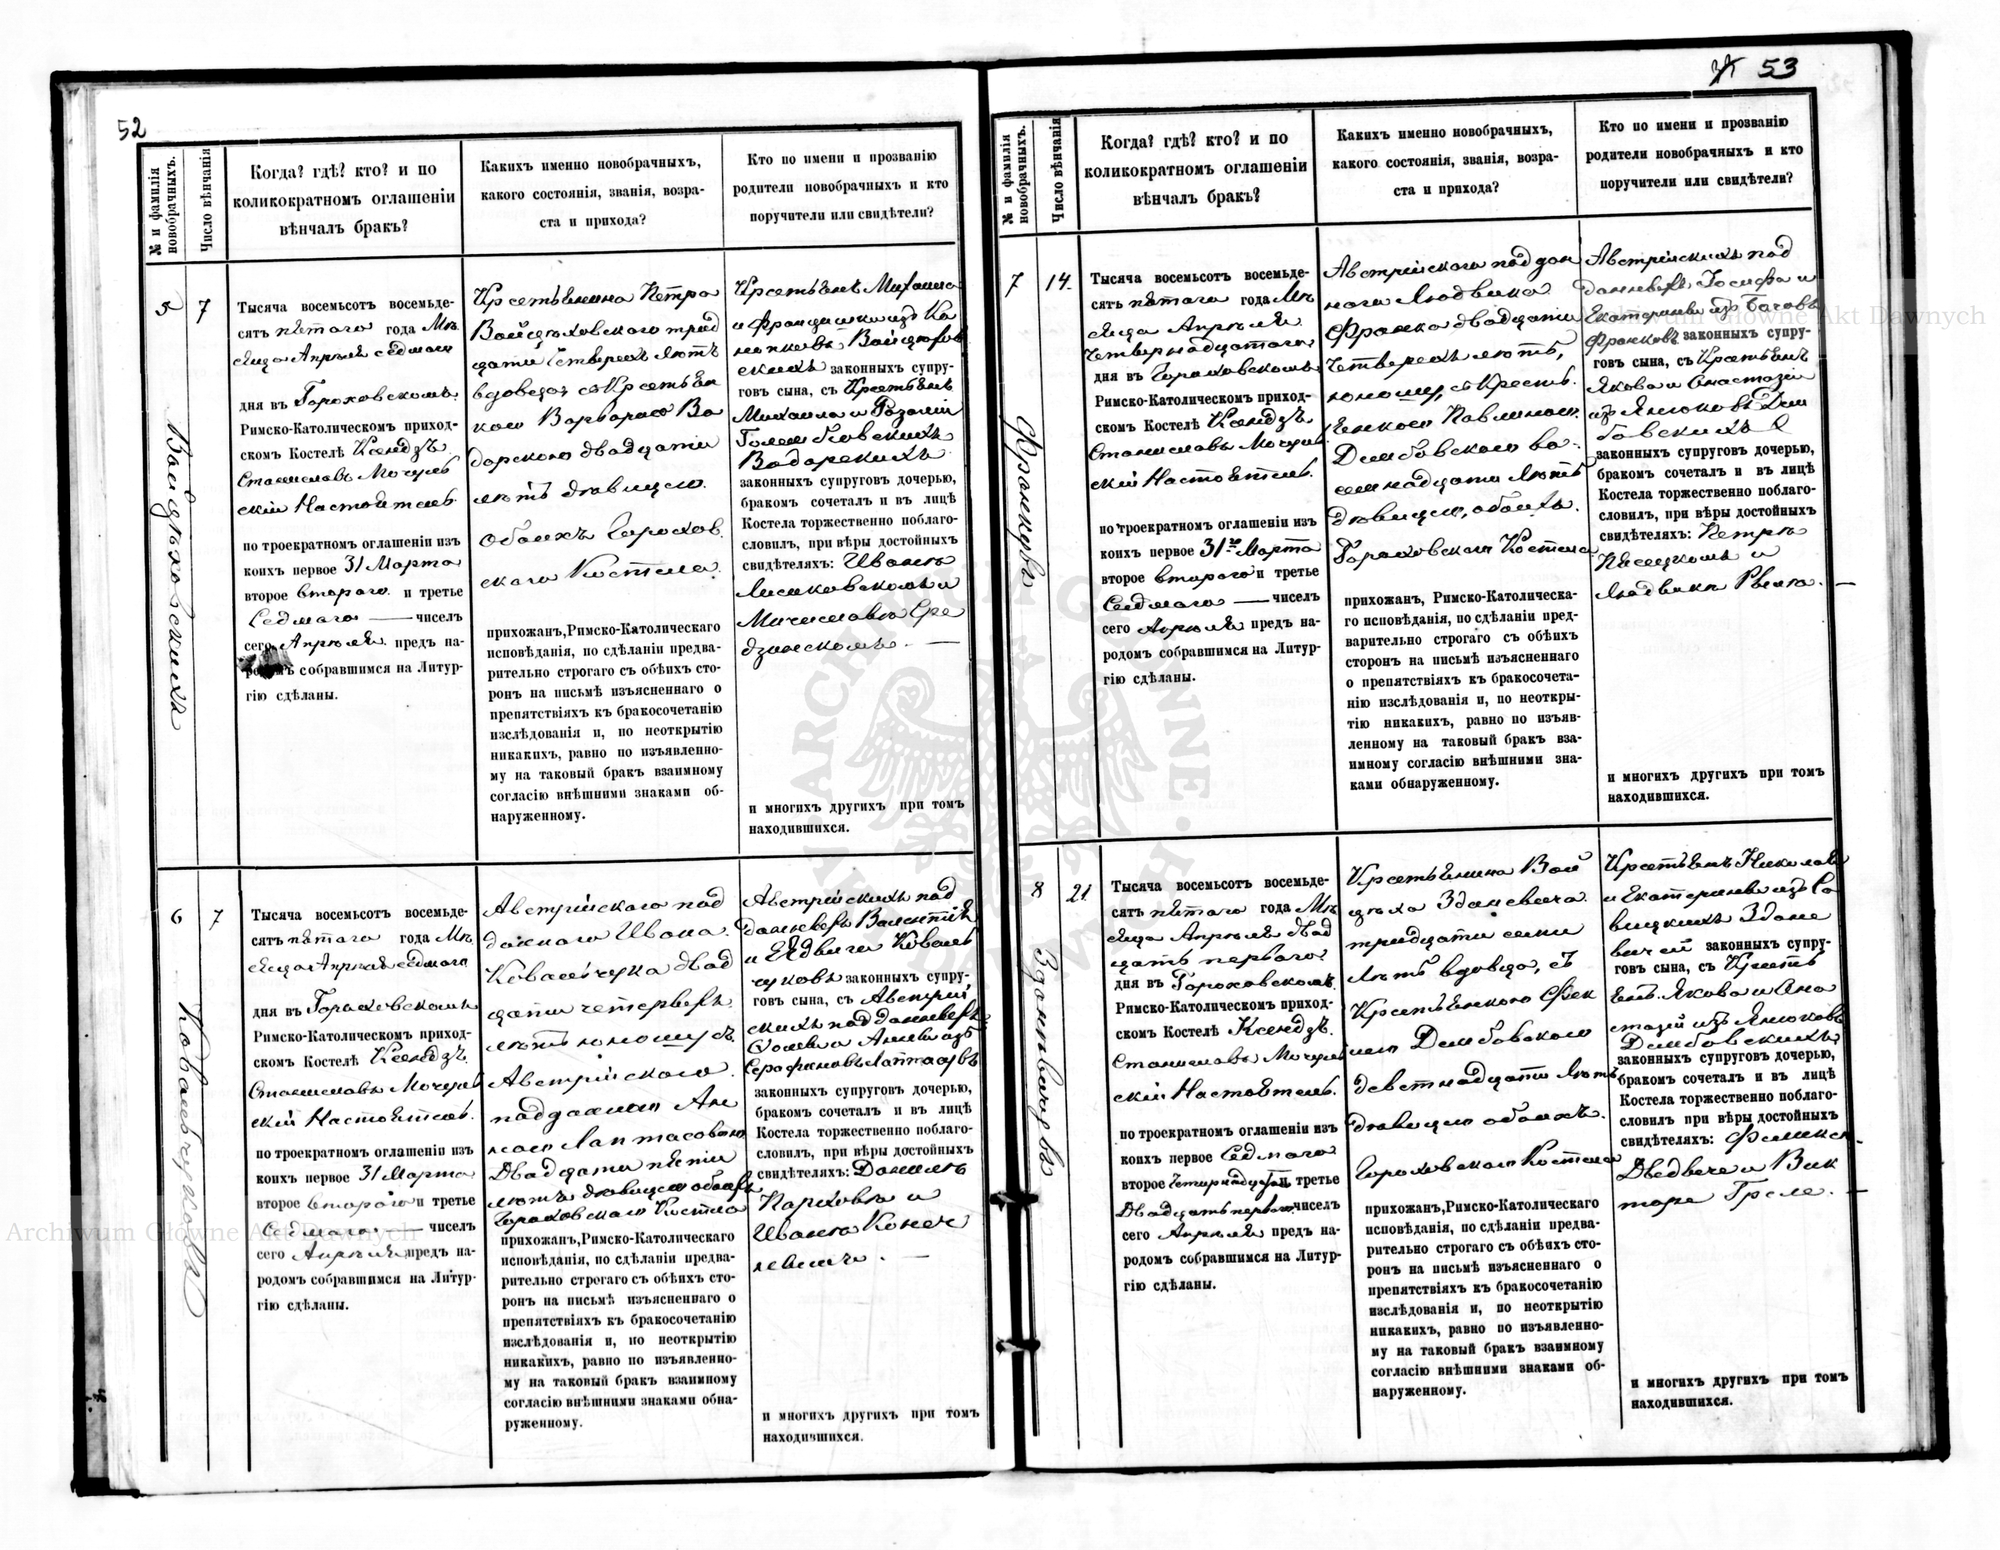 52
№ и фамилія новобрачныхъ.
Число вѣнчанія
Когда? гдѣ? кто? и по
коликократномъ оглашеніи
вѣнчалъ бракъ?
Какихъ именно новобрачныхъ,
какого состоянія, званія, возра-
ста и прихода?
Кто по имени и прозванію
родители новобрачныхъ и кто
поручители или свидѣтели?
5
7
Тысяча восемьсотъ восемьде-
сятъ пятаго года Мѣ-
сяца Апрѣля седмаго
дня въ Гороховскомъ
Римско-Католическомъ приход-
скомъ Костелѣ Ксендзъ
Станиславъ Мочуль
скій Настоятель.
по троекратномъ оглашеніи изъ
коихъ первое 31 Марта
второе втораго и третье
Седмаго — чиселъ
сего Апрѣля предъ на-
родомъ собравшимся на Литур-
гію сдѣланы.
Крестьянина Петра
Войцѣховского трид
цати четверехъ лѣтъ
вдовца съ Крестьян
кою Варварою Во
дарскою двадцати
лѣтъ дѣвицею.
обоихъ Горохов
скаго Костела.
прихожанъ, Римско-Католическаго
исповѣданія, по сдѣланіи предва-
рительно строгаго съ обѣихъ сто-
ронъ на письмѣ изъясненнаго о
препятствіяхъ къ бракосочетанію
изслѣдованія и, по неоткрытію
никакихъ, равно по изъявленно-
му на таковый бракъ взаимному
согласію внѣшними знаками об-
наруженному.
Крестьянъ Михаила
и Францишки изъ
Войцѣхов
скихъ законныхъ супру-
говъ сына, съ Крестьянъ
Михаила и Розаліи
Водарскихъ
законныхъ супруговъ дочерью,
бракомъ сочеталъ и въ лицѣ
Костела торжественно поблаго-
словилъ, при вѣры достойныхъ
свидѣтеляхъ: Иваномъ
Лисиковскомъ и
Мичиславѣ Сре
дзинскомъ. —
и многихъ другихъ при томъ
находившихся.
6
7
Ковальчуковъ
Тысяча восемьсотъ восемьде-
сятъ пятаго года Мѣ-
сяца Апрѣля седмаго
дня въ Гороховскомъ
Римско-Католическомъ приход-
скомъ Костелѣ Ксендзъ
Станиславъ Мочуль
скій Настоятель.
по троекратномъ оглашеніи изъ
коихъ первое 31 Марта
второе втораго и третье
Седмаго — чиселъ
сего Апрѣля предъ на-
родомъ собравшимся на Литур-
гію сдѣланы.
Австрійскаго под
даннаго Ивана
Ковальчука двад
цати четерехъ
лѣтъ юношу съ
Австрійскаго
подданною Ан
ною Лаптасовною
Двадцати пяти
лѣтъ дѣвицею обоихъ
Гороховскаго Костела
прихожанъ, Римско-Католическаго
исповѣданія, по сдѣланіи предва-
рительно строгаго съ обѣихъ сто-
ронъ на письмѣ изъясненнаго о
препятствіяхъ къ бракосочетанію
изслѣдованія и, по неоткрытію
никакихъ, равно по изъявленно-
му на таковый бракъ взаимному
согласію внѣшними знаками обна-
руженному.
Австрійскихъ под
данныхъ Валентія
и Ядвиги Коваль
чуковъ законныхъ супру-
говъ сына, съ Австрій
скихъ подданныхъ
изъ
Серафиновъ Лаптасовъ
законныхъ супруговъ дочерью,
бракомъ сочеталъ и въ лицѣ
Костела торжественно поблаго-
словилъ, при вѣры достойныхъ
свидѣтеляхъ: Данилѣ
и
Иваномъ
—
и многихъ другихъ при томъ
находившихся.
53
№ и фамилія новобрачныхъ.
Число вѣнчанія
Когда? гдѣ? кто? и по
коликократномъ оглашеніи
вѣнчалъ бракъ?
Какихъ именно новобрачныхъ,
какого состоянія, званія, возра-
ста и прихода?
Кто по имени и прозванію
родители новобрачныхъ и кто
поручители или свидѣтели?
7
14.
Тысяча восемьсотъ восемьде-
сятъ пятаго года Мѣ-
сяца Апрѣля
Четвернадцатаго
дня въ Гороховскомъ
Римско-Католическомъ приход-
скомъ Костелѣ Ксендзъ
Станиславъ Мочуль
скій Настоятель.
по троекратномъ оглашеніи изъ
коихъ первое 31го Марта
второе втораго и третье
Седмаго — чиселъ
сего Апрѣля предъ на-
родомъ собравшимся на Литур-
гію сдѣланы.
Австрійскаго поддан
наго Людвика
Франка двадцати
четверехъ лѣтъ,
юношу, съ Кресть
янкою Павлиною
Демьбовскою во-
семнадцати лѣтъ
дѣвицею, обоихъ
Гороховскаго Костела
прихожанъ, Римско-Католическа-
го исповѣданія, по сдѣланіи пред-
варительно строгаго съ обѣихъ
сторонъ на письмѣ изъясненнаго
о препятствіяхъ къ бракосочета-
нію изслѣдованія и, по неоткры-
тію никакихъ, равно по изъяв-
ленному на таковый бракъ вза-
имному согласію внѣшними зна-
ками обнаруженному.
Австрійскихъ под
данныхъ Іосифа и
Екатерины изъ
Франковъ законныхъ супру-
говъ сына, съ Крестьянъ
Якова и Анастазіи
изъ Янюковъ Дем
бовскихъ
законныхъ супруговъ дочерью,
бракомъ сочеталъ и въ лицѣ
Костела торжественно поблаго-
словилъ, при вѣры достойныхъ
свидѣтеляхъ: Петрѣ
Пясецкомъ и
Людвикѣ —
и многихъ другихъ при томъ
находившихся.
8
21.
Тысяча восемьсотъ восемьде-
сятъ пятаго года Мѣ-
сяца Апрѣля двад
цать перваго
дня въ Гороховскомъ
Римско-Католическомъ приход-
скомъ Костелѣ Ксендзъ
Станиславъ Мочуль
скій Настоятель.
по троекратномъ оглашеніи изъ
коихъ первое Седмаго
второе третье
чиселъ
сего Апрѣля предъ на-
родомъ собравшимся на Литур-
гію сдѣланы.
Крестьянина Вой
цѣха Здановича
тридцати семи
лѣтъ вдовца, съ
Крестьянкою Фек
лею Дембовскою
девятнадцати лѣтъ
дѣвицею обоихъ
Гороховскаго Костела
прихожанъ, Римско-Католическаго
исповѣданія, по сдѣланіи предва-
рительно строгаго съ обѣихъ сто-
ронъ на письмѣ изъясненнаго о
препятствіяхъ къ бракосочетанію
изслѣдованія и, по неоткрытію
никакихъ, равно по изъявленно-
му на таковый бракъ взаимному
согласію внѣшними знаками об-
наруженному.
Крестьянъ Николая
и Екатерины изъ Са
вицкихъ Здано
вичей законныхъ супру-
говъ сына, съ Кресть
янъ Якова и Ана
стазіи изъ Янюковъ
Дембовскихъ
законныхъ супруговъ дочерью,
бракомъ сочеталъ и въ лицѣ
Костела торжественно поблаго-
словилъ при вѣры достойныхъ
свидѣтеляхъ:
и Вик
торѣ —
и многихъ другихъ при томъ
находившихся.
Archiwum Główne Akt Dawnych
Archiwum Główne Akt Dawnych
ARCHIWUM GŁÓWNE AKT DAWNYCH